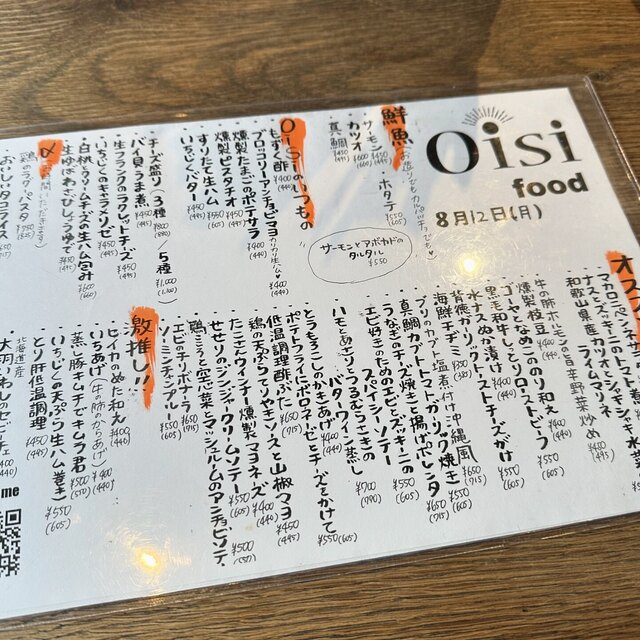 Oisi
food
8月12日(月)
鮮魚
お造りでもカルパッチョでも♥
・サーモン ¥450 (495)
・ホタテ ¥550 (605)
・カツオ ¥600 (660)
・真鯛
サーモンとアボカドの
タルタル
¥550
Oisiのいつもの
・もずく酢 ¥400 (440)
・ブロッコリーアンチョビマヨ カリカリ生ハム♥ ¥400 (440)
・燻製たまごのポテサラ ¥400 (440)
・燻製ピスタチオ ¥500 (550)
・すりたて生ハム ¥550 (605)
・いちじくバター
・チーズ盛り (3種 ¥800 (880) / 5種 ¥1,000 (1,100))
・バイ貝うま煮
・生フランクのラクレットチーズ
・いちじくのキャラメリゼ
・白桃とクリームチーズの生ハム包み ¥600 (660)
・生ゆばわさびしょうゆで ¥450 (495)
〆
・鶏のラグーパスタ
・おいしいタコライス
オス
和歌山県産
・牛の肺ホルモンと
・燻製枝豆 ¥400 (440)
・ゴーヤとなめこののり和え
・黒毛和牛しっとりローストビーフ
・水ナスぬか漬け ¥400 (440)
・背徳ガーリックトーストチーズがけ ¥550 (605)
・海鮮チヂミ ¥350
・ブリのカブト塩煮付け沖縄風 ¥650 (715)
・真鯛カブトトマトガーリック焼き ¥650 (715)
・うなぎのチーズ焼きと揚げポレンタ
・エビ好きのためのエビとズッキーニの
スパイシーソテー ¥550 (605)
・ハモとあさりとつるむらさきの
バター白ワイン蒸し ¥700 (770)
・とうもろこしのかきあげ ¥400 (440)
・ポテトフライにボロネーゼとチーズとかけて ¥550 (605)
・低温調理酢ぶた ¥650 (715)
・鶏の天ぷらてりやきソースと山椒マヨ ¥450 (495)
・たこさんウインナー燻製マヨネーズ ¥400 (440)
・せせりのジンジャークリームソテー ¥550 (605)
・鶏ミンチと空芯菜とマッシュルームのアンチョビソテー ¥500 (550)
・エビのチリボナーラ ¥650 (715)
・ソーミンチャンプルー ¥550 (605)
激推し!!
・ヒイカのぬた和え ¥400 (440)
・いちあげ (牛の肺からあげ) ¥400 (440)
・蒸し豚キムチでキムラ君
・いちじくの天ぷら(生ハム巻き) ¥550 (605)
・とり肝低温調理 ¥450 (495)
北海道産
・大羽いわしのセビーチェ
me